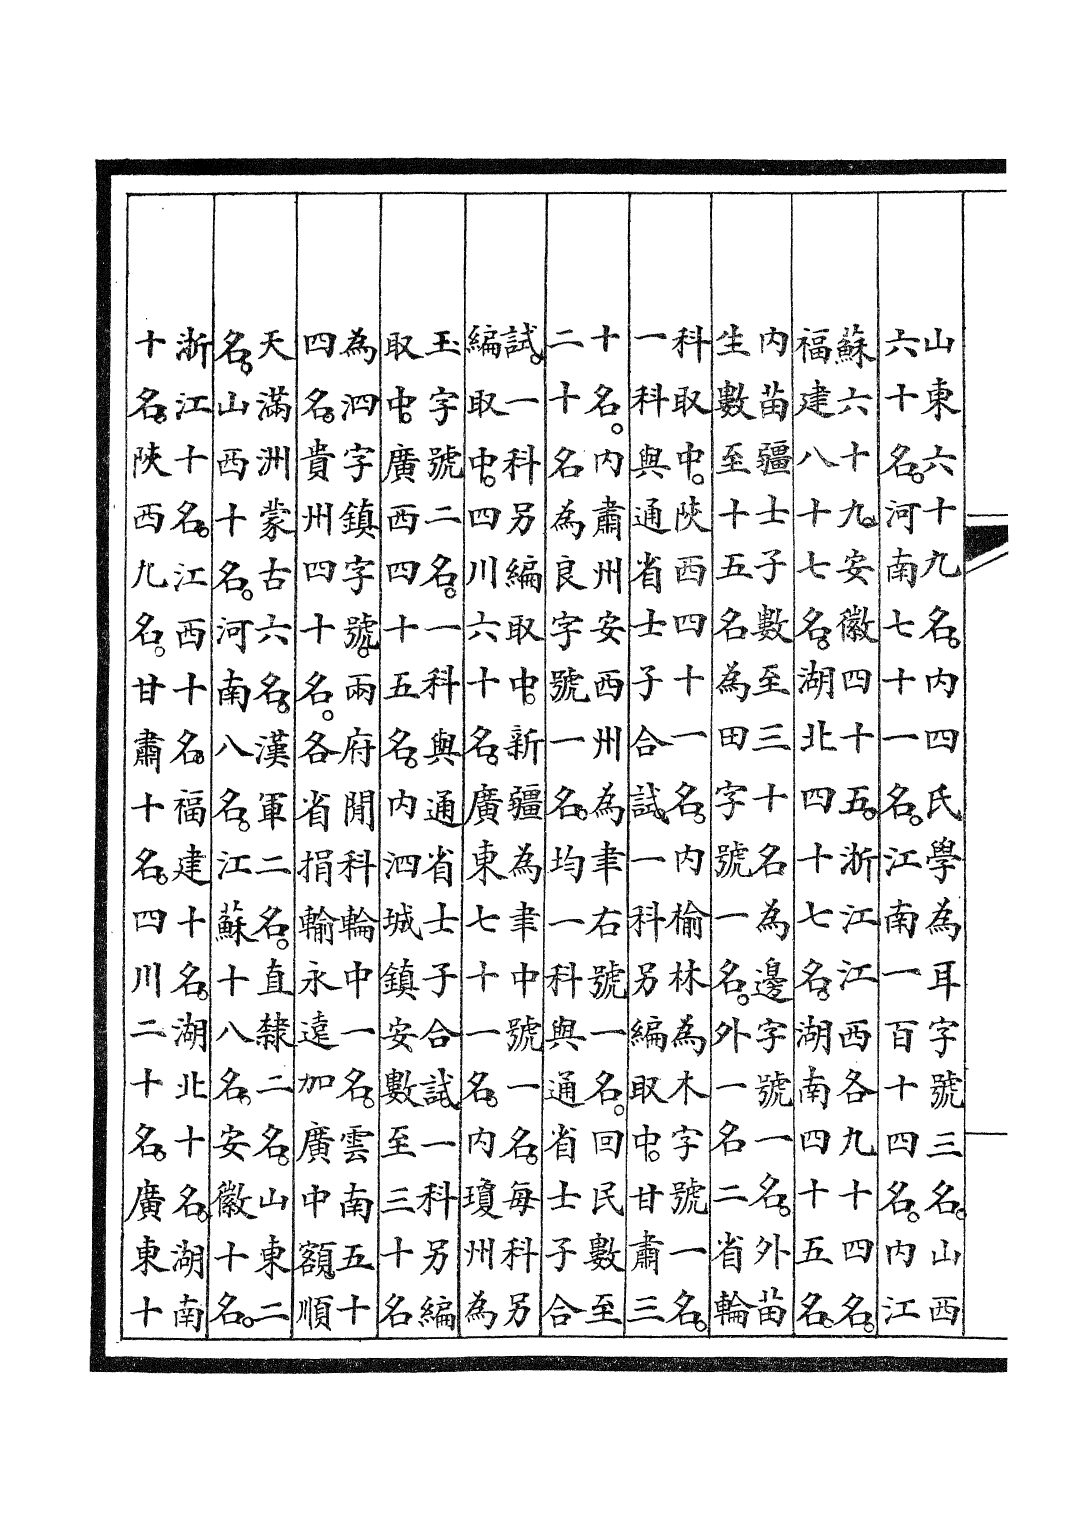 山東六十九名。內四氏學為耳字號三名。山西
六十名。河南七十一名。江南一百十四名。內江
蘇六十九。安徽四十五。浙江江西各九十四名。
福建八十七名。湖北四十七名。湖南四十五名。
內苗疆士子數至三十名為邊字號一名。外苗
生數至十五名為田字號一名。外一名二省輪
科取中。陝西四十一名。內榆林為木字號一名。
一科與通省士子合試。一科另編取中。甘肅三
十名。內肅州安西州為聿右號一名。回民數至
二十名為良字號一名。均一科與通省士子合
試。一科另編取中。新疆為聿中號一名。每科另
編取中。四川六十名。廣東七十一名。內瓊州為
玉字號二名。一科與通省士子合試。一科另編
取中。廣西四十五名。內泗城鎮安數至三十名
為泗字鎮字號。兩府閒科輪中一名。雲南五十
四名。貴州四十名。各省捐輸永遠加廣中額。順
天滿洲蒙古六名。漢軍二名。直隸二名。山東二
名。山西十名。河南八名。江蘇十八名。安徽十名。
浙江十名。江西十名。福建十名。湖北十名。湖南
十名。陝西九名。甘肅十名。四川二十名。廣東十